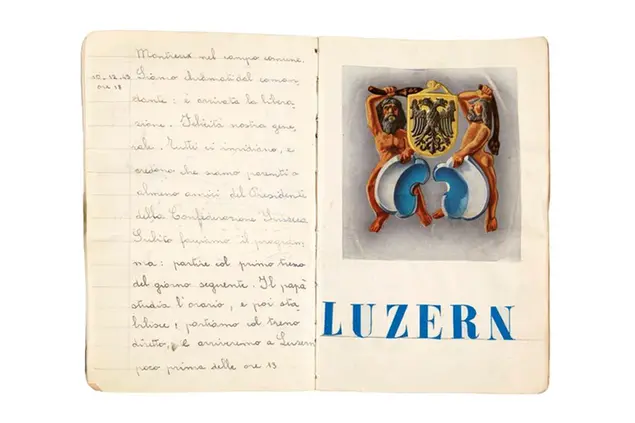 Montreux nel campo comune.
10-12-43
ore 18
Siamo chiamati dal coman-
dante: è arrivata la libera-
zione. Felicità nostra gene-
rale. Tutti ci invidiano, e
credono che siamo parenti o
almeno amici del Presidente
della Confederazione Svizzera
Subito facciamo il program-
ma: partire col primo treno
del giorno seguente. Il papà
studia l'orario, e poi sta-
bilisce, partiamo col treno
diretto, e arriveremo a Luzern
poco prima delle ore 13
LUZERN